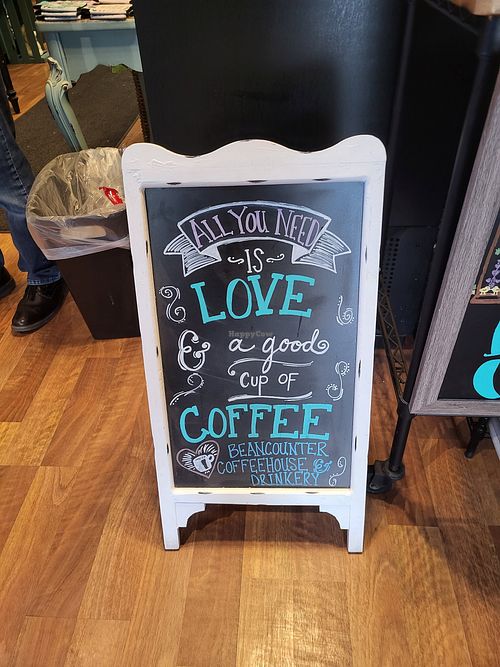 ALL YOU NEED
IS
LOVE
& a good
CUP OF
COFFEE
BEANCOUNTER
COFFEEHOUSE &
DRINKERY
HappyCow